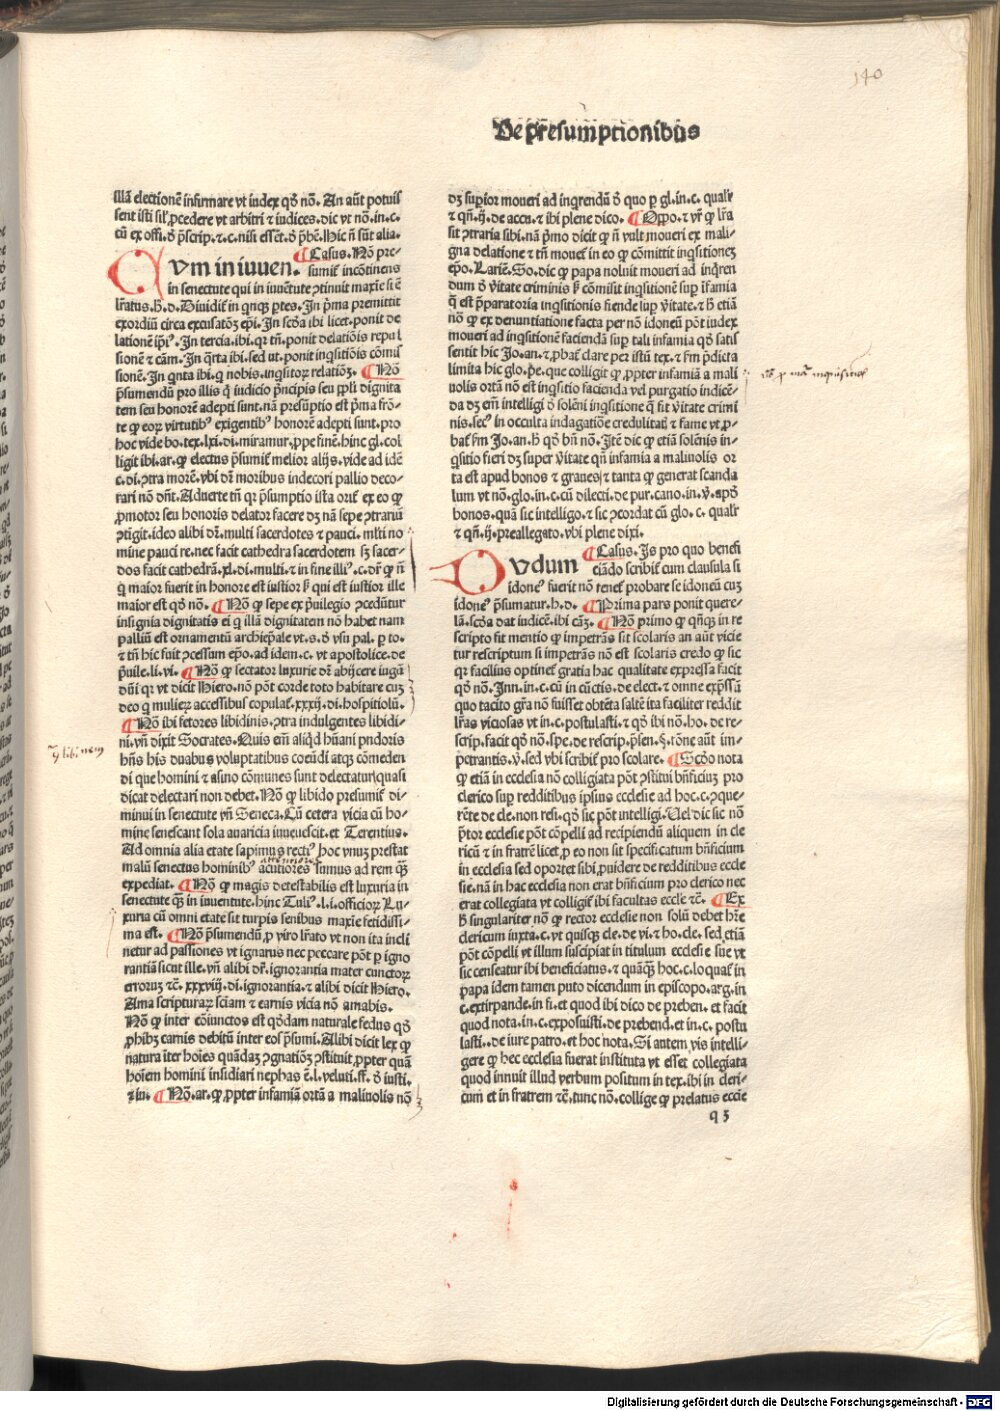 140
De presumptionibus
illā electionē infirmare vt iudex qđ nō. An aūt potuis
sent isti sil' ꝓcedere vt arbitri ⁊ iudices. dic vt nō. in. c.
cū ex offi. đ p̄scrip. ⁊. c. nisi essēt. đ p̄bē. Hic ñ sūt alia.
¶ Casus. Nō pre-
Cvm in iuuen. sumit̄ incōtinens
in senectute qui in iuuētute ↄtinuit maxīe si ē
lr̄atus. h̄. d. Diuidit̄ in qnqꝫ ꝑtes. In p̄ma premittit
exordiū circa excusatōꝫ ep̄i. In scđa ibi licet. ponit de
lationē ip̄iꝰ. In tercia. ibi. qꝛ tñ. ponit delatiōis repul
sionē ⁊ cām. In q̄rta ibi. sed ut. ponit inq̄sitiōis cōmis
sionē. In qnta ibi. q nobis. inq̄sitoꝝ relatiōꝫ. ¶ Nō
p̄sumendū pro illis q̄ iudicio p̄ncipis seu ppl'i dignita
tem seu honorē adepti sunt. nā presūptio est p̄ma frō-
te ꝙ eoꝝ virtutibꝰ exigentibꝰ honorē adepti sunt. pro
hoc vide bo. tex. lxi. di. miramur. ꝓpe finē. hinc gl. col
ligit ibi. ar. ꝙ electus p̄sumit̄ melior alijs. vide ad idē
c. di. ↄtra morē. vbi dr̄ moribus indecori pallio deco-
rari nō dn̄t. Aduerte tñ qꝛ p̄sumptio ista orit̄ ex eo ꝙ
ꝓmotor seu honoris delator facere dꝫ nā sepe ↄtrariū
ↄtigit. ideo alibi dr̄. multi sacerdotes ⁊ pauci. ml'ti no
mine pauci re. nec facit cathedra sacerdotem sꝫ sacer-
dos facit cathedrā. xl. di. multi. ⁊ in fine illiꝰ. c. dr̄ ꝙ ñ
q̄ maior fuerit in honore est iustior sꝫ qui est iustior ille
maior est qđ nō. ¶ Nō ꝙ sepe ex p̄uilegio ↄcedūtur
insignia dignitatis ei q̄ illā dignitatem nō habet nam
palliū est ornamentū archiep̄ale vt. s. đ vsu pal. ꝑ to.
⁊ tñ hic fuit ↄcessum ep̄o. ad idem. c. vt apostolice. de
p̄uile. li. vi. ¶ Nō ꝙ sectator luxurie dꝫ abijcere iugū
dn̄i qꝛ vt dicit Hiero. nō pōt corde toto habitare cuꝫ
deo q̄ mulieꝝ accessibus copulat̄. xxxij. di. hospitiolū.
¶ Nō ibi fetores libidinis. ↄtra indulgentes libidi-
ni. vn̄ dixit Socrates. Quis em̄ aliqđ hūani pudoris
hn̄s his duabus voluptatibus coeūdi atqꝫ cōmeden
di que homini ⁊ asino cōmunes sunt delectatur quasi
dicat delectari non debet. Nō ꝙ libido presumit̄ di-
minui in senectute vn̄ Seneca. Cū cetera vicia cū ho-
mine senescant sola auaricia iuuenescit. et Terentius.
Ad omnia alia etate sapimus rectiꝰ hoc vnuꝫ prestat
malū senectus hominibꝰ acutiores sumus ad rem q̄ꝫ
expediat. ¶ Nō ꝙ magis detestabilis est luxuria in
senectute q̄ꝫ in iuuentute. hinc Tuliꝰ. l. i. officioꝝ Lu-
xuria cū omni etate sit turpis senibus maxīe fetidissi-
ma est. ¶ Nō p̄sumendū ꝓ viro lr̄ato vt non ita incli
netur ad passiones vt ignarus nec peccare pōt ꝑ igno
rantiā sicut ille. vn̄ alibi dr̄. ignorantia mater cunctoꝝ
erroruꝫ ⁊c̄. xxxviij. di. ignorantia. ⁊ alibi dicit Hiero.
Ama scripturaꝝ sciam ⁊ carnis vicia nō amabis.
Nō ꝙ inter cōiunctos est qđdam naturale fedus qđ
ꝓhibꝫ carnis debitū inter eos p̄sumi. Alibi dicit lex ꝙ
natura īter hoīes quādaꝫ ↄgnatiōꝫ ↄstituit. ꝓpter quā
hoīem homini insidiari nephas ē. l. veluti. ff. đ iusti.
⁊ iu. ¶ Nō. ar. ꝙ ꝓpter infamiā ortā a maliuolis nō
dꝫ supior moueri ad inqrendū đ quo ꝑ gl. in. c. qualr̄
⁊ qn̄. ij. de accu. ⁊ ibi plene dico. ¶ Oppo. ⁊ vr̄ ꝙ lr̄a
sit ↄtraria sibi. nā p̄mo dicit ꝙ ñ vult moueri ex mali-
gna delatione ⁊ tñ mouet̄ in eo ꝙ cōmittit inq̄sitioneꝫ
ep̄o. Lariē. So. dic ꝙ papa noluit moueri ad inq̄ren
dum đ vitate criminis sꝫ cōmisit inq̄sitionē sup īfamia
q̄ est p̄paratoria inq̄sitionis fiende sup vitate. ⁊ h̄ etiā
nō ꝙ ex denuntiatione facta per nō idoneū pōt iudex
moueri ad inq̄sitionē faciendā sup tali infamia qđ satis
sentit hic Jo. an. ⁊ ꝓbat̄ clare per istū tex. ⁊ fm̄ p̄dicta
limita hic glo. pe. que colligit ꝙ ꝓpter infamiā a mali
uolis ortā nō est inq̄sitio facienda vel purgatio indicē-
da dꝫ em̄ intelligi đ solēni inq̄sitione q̄ fit đ vitate crimi
nis. secꝰ in occulta indagatiōe credulitatꝭ ⁊ fame vt ꝓ-
bat̄ fm̄ Jo. an. h̄ qđ bn̄ nō. Itē dic ꝙ etiā solēnis in-
q̄sitio fieri dꝫ super vitate qn̄ infamia a maliuolis or
ta est apud bonos ⁊ graues ⁊ tanta ꝙ generat scanda
lum vt nō. glo. in. c. cū dilecti. de pur. cano. in. v̄. apđ
bonos. quā sic intelligo. ⁊ sic ↄcordat cū glo. c. qualr̄
⁊ qn̄. ij. preallegato. vbi plene dixi.
¶ Casus. Is pro quo benefi
Qvdum ciādo scribit̄ cum clausula si
idoneꝰ fuerit nō tenet̄ probare se idoneū cuꝫ
idoneꝰ p̄sumatur. h. d. ¶ Prima pars ponit quere-
lā. scđa dat iudicē. ibi cāꝫ. ¶ Nō primo ꝙ qn̄qꝫ in re
scripto fit mentio ꝙ impetrās sit scolaris an aūt vicie
tur rescriptum si impetrās nō est scolaris credo ꝙ sic
qꝛ facilius optinet̄ gratia hac qualitate expressa facit
qđ nō. Inn. in. c. cū in cūctis. de elect. ⁊ omne exp̄ssū
quo tacito gr̄a nō fuisset obtēta saltē ita faciliter reddit
lr̄as viciosas vt in. c. postulasti. ⁊ qđ ibi nō. ho. de re-
scrip. facit qđ nō. spe. de rescrip. p̄sen. §. rōne aūt im-
petrantis. v̄. sed vbi scribit̄ pro scolare. ¶ Scđo nota
ꝙ etiā in ecclesia nō collegiata pōt ↄstitui bn̄ficiuꝫ pro
clerico sup redditibus ipsius ecclesie ad hoc. c. ↄque-
rēte de cle. non resi. qđ sic pōt intelligi. Uel dic sic nō
p̄tor ecclesie pōt cōpelli ad recipiendū aliquem in cle
ricū ⁊ in fratrē licet. ꝓ eo non sit specificatum bn̄ficium
in ecclesia sed oportet sibi ꝓuidere de redditibus eccle
sie. nā in hac ecclesia non erat bn̄ficium pro clerico nec
erat collegiata vt colligit̄ ibi facultas eccl'e ⁊c̄. ¶ Ex
h̄ singulariter nō ꝙ rector ecclesie non solū debet hr̄e
clericum iuxta. c. vt quisqꝫ cle. de vi. ⁊ ho. cle. sed etiā
pōt cōpelli vt illum suscipiat in titulum ecclesie sue vt
sic censeatur ibi beneficiatus. ⁊ quāq̄ꝫ hoc. c. loquat̄ in
papa idem tamen puto dicendum in episcopo. arg. in
c. extirpande. in fi. et quod ibi dico de preben. et facit
quod nota. in. c. exposuisti. de prebend. et in. c. postu
lasti.. de iure patro. et hoc nota. Si autem vis intelli-
gere ꝙ hec ecclesia fuerat instituta vt esset collegiata
quod innuit illud verbum positum in tex. ibi in cleri-
cum et in fratrem ⁊c̄. tunc nō. collige ꝙ prelatus eccl'e
q 3
Digitalisierung gefördert durch die Deutsche Forschungsgemeinschaft - DFG